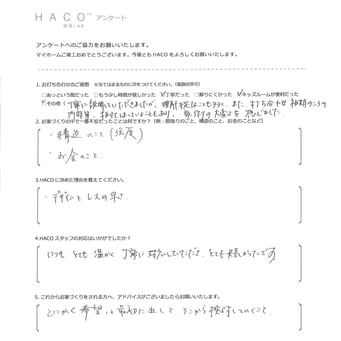 HACO アンケート
アンケートへのご協力をお願いいたします。
マイホームご竣工おめでとうございます。今後ともHACOをよろしくお願いいたします。
1. お打ち合わせのご感想 ※当てはまるものに印をつけてください。（複数回答可）
□あっという間だった □もう少し時間が欲しかった ☑丁寧だった □解りにくかった ☑キッズルームが便利だった
☑その他（丁寧に説明していただきましたが、理解
2. お家づくりの中で一番不安だったことは何ですか？（例：間取りのこと、構造のこと、お金のことなど）
・構造のこと（強度）
・お金のこと
3.HACOに決めた理由を教えてください。
・デザインとレスの早さ
4.HACOスタッフの対応はいかがでしたか？
いつもとても温かく丁寧に対応していただき、とても良かったです
5. これからお家づくりをされる方へ、アドバイスがございましたらお願いいたします。
とにかく希望は最初に出して、そこから検討していくこと